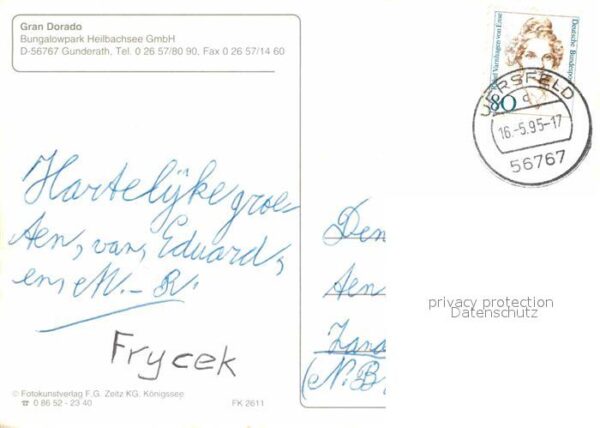 Gran Dorado
Bungalowpark Heilbachsee GmbH
D-56767 Gunderath, Tel. 0 26 57/80 90, Fax 0 26 57/14 60
Rahel Varnhagen von Ense
Deutsche Bundespost
80
UERSFELD
d
16.-5.95-17
56767
Hartelijke groe-
ten, van, Eduard,
en, M.- R.
Frycek
Den
Aen
(N.B
privacy protection
Datenschutz
© Fotokunstverlag F.G. Zeitz KG, Königssee
☎ 0 86 52 - 23 40
FK 2611